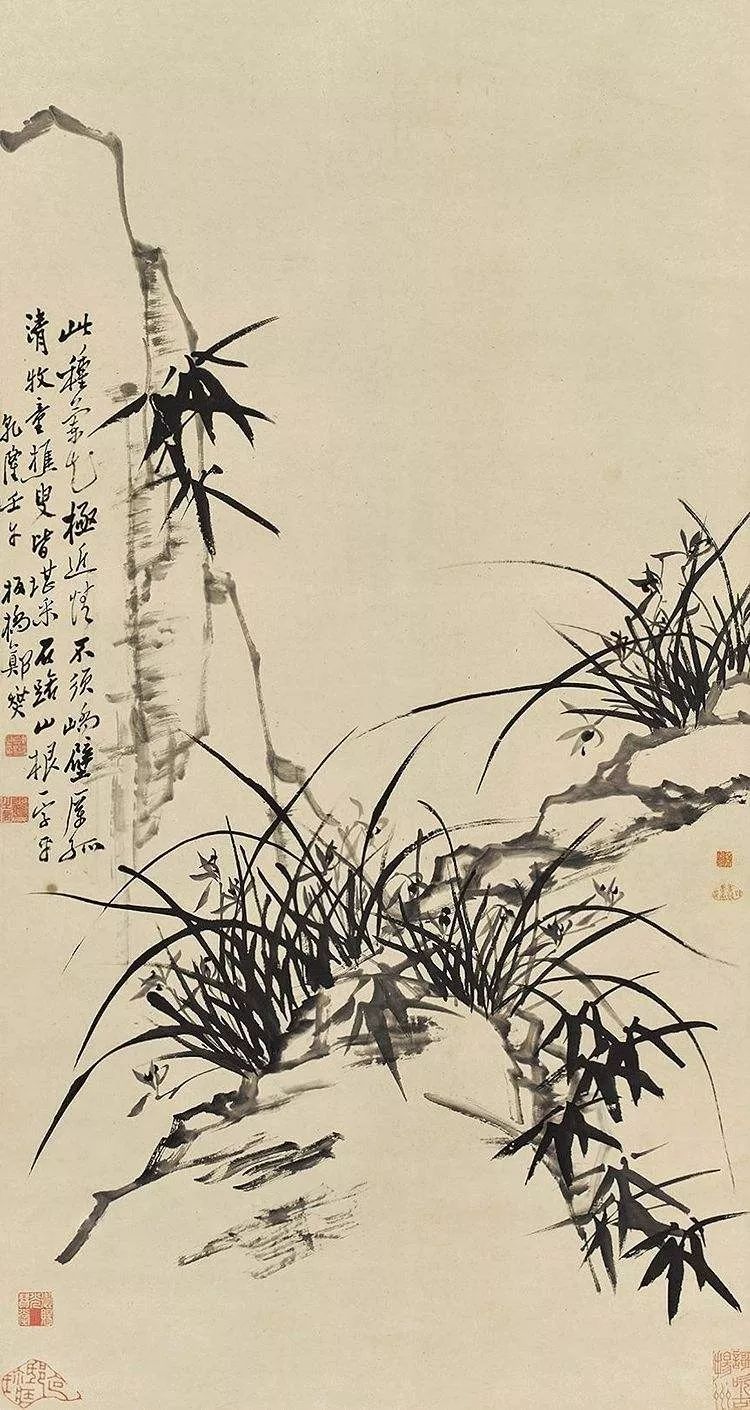 此種蘭花極近情不須峭壁厓孤
清牧童樵叟皆堪采石罅山根一字平
乾隆壬午板橋鄭燮